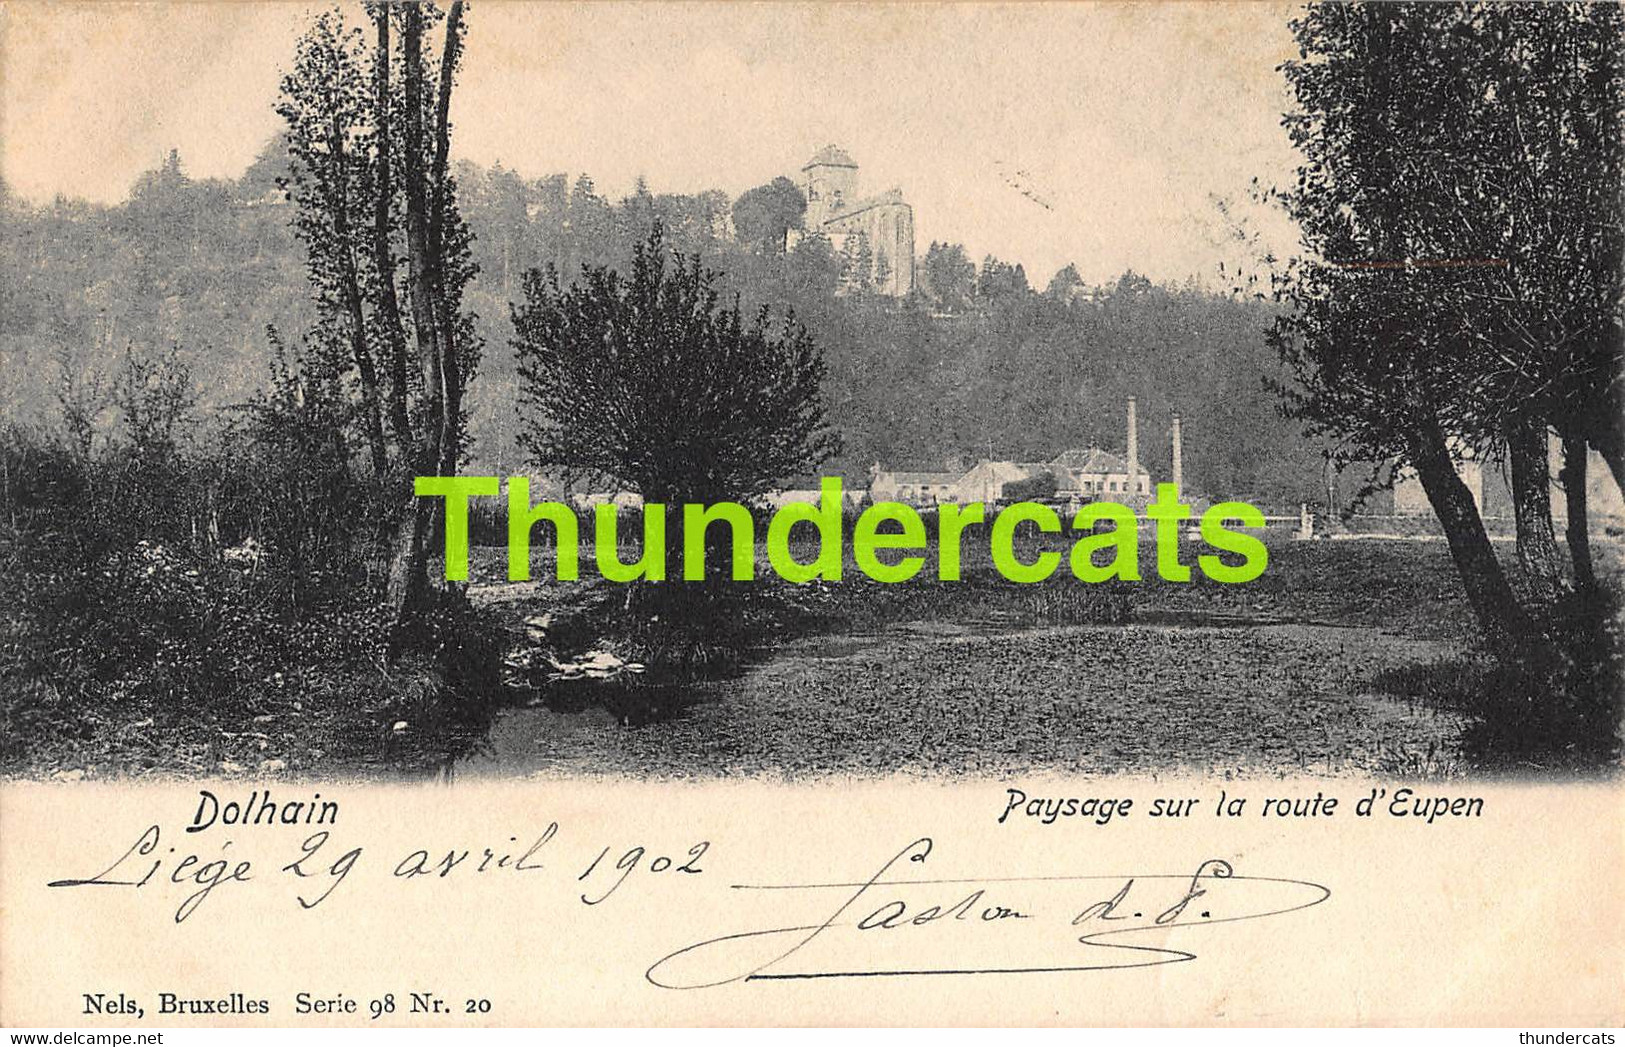 Thundercats
Dolhain
Paysage sur la route d'Eupen
Liège 29 avril 1902
Gaston d. P.
Nels, Bruxelles Serie 98 Nr. 20
thundercats